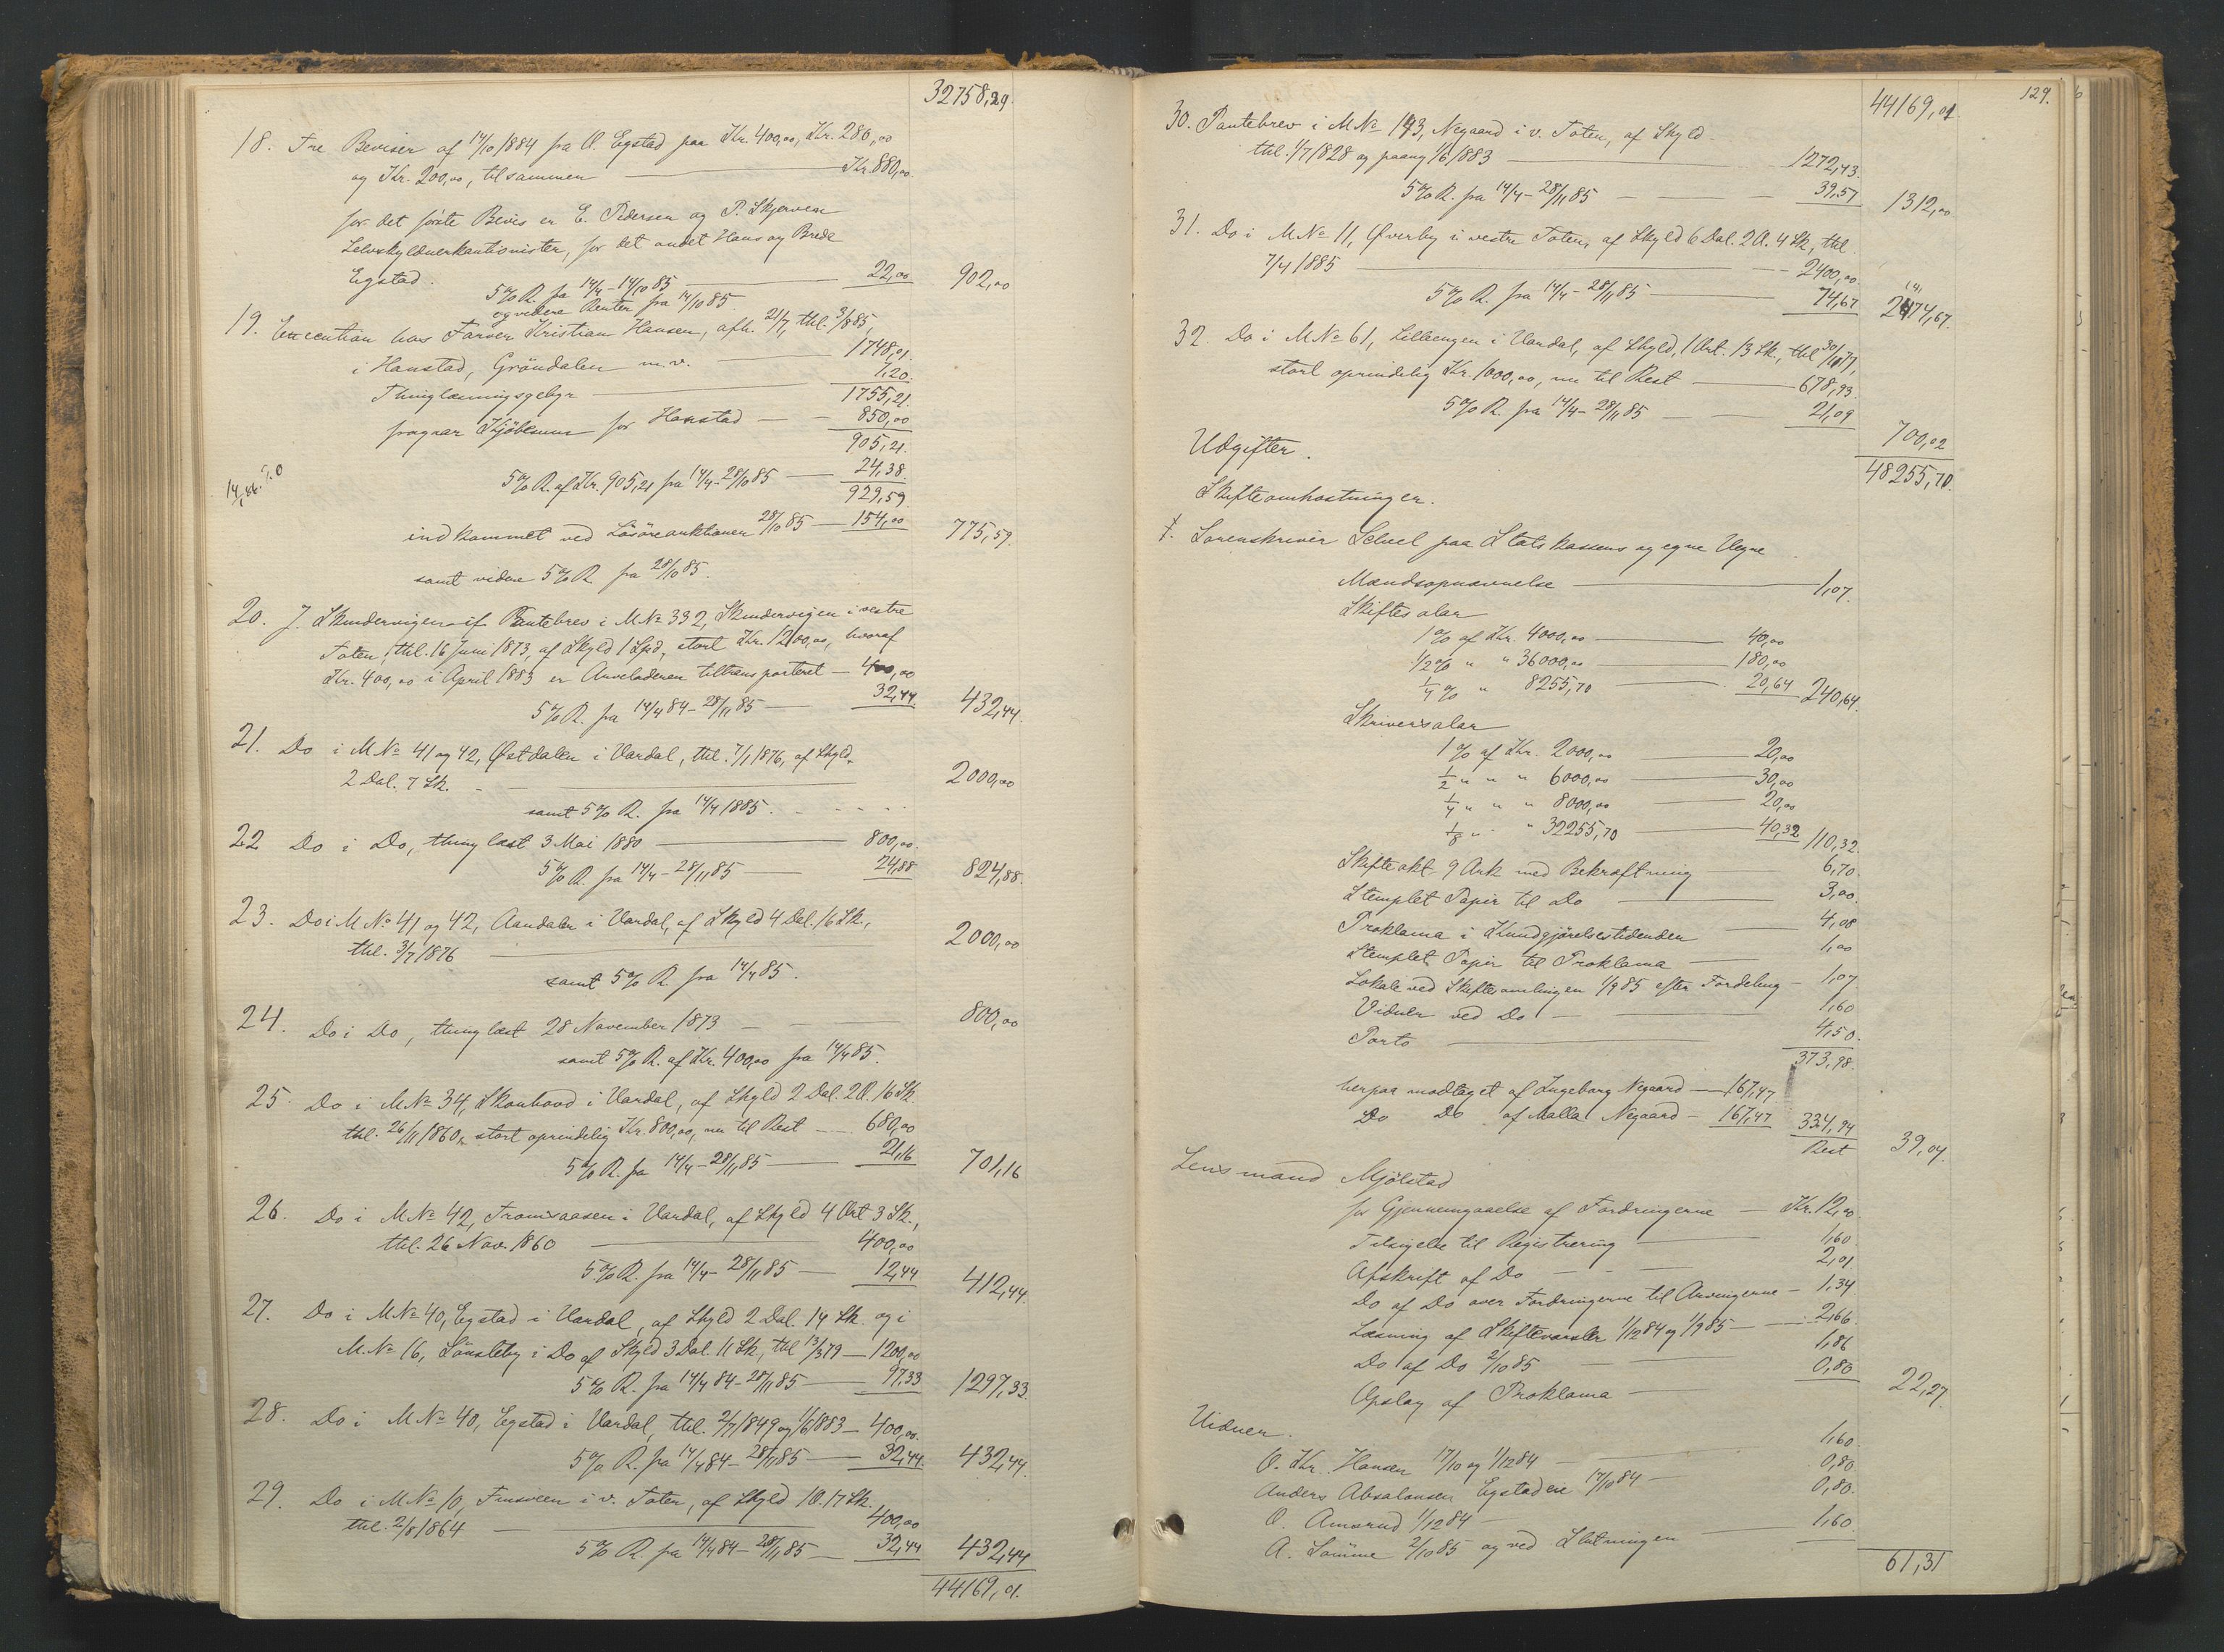 32758,29
18. Tre Beviser af 14/10 1884 fra O. Egstad paa Kr. 400,00, Kr. 280,00
og Kr. 200,00, tilsammen — Kr. 880,00
for det første Bevis er E. Pedersen og P. Skjerven
Selvskyldnerkautionister, for det andet Hans og Brede
Egstad. 5% R. fra 14/4 - 14/10 85 — 22,00 902,00
og videre Renter fra 14/10 85
19. Execution hos Farver Kristian Hansen, afh. 21/7, thl. 3/8 85,
i Hanstad, Gröndalen m.v. — 1748,01.
Thinglæsningsgebyr — 7,20.
1755,21.
fragaar Kjöbesum for Hanstad — 850,00
905,21.
5% R. af Kr. 905,21 fra 14/4 - 28/10 85 — 24,38.
929,59
indkommet ved Lösöreauktionen 28/10 85 — 154,00 775,59.
samt videre 5% R. fra 28/10 85.
20. J. Skundervigen if. Pantebrev i M.No 332, Skundervigen i vestre
Toten, thl. 16 Juni 1873, af Skyld 1 Lpd, stort Kr. 1200,00, hvoraf
Kr. 400,00 i April 1883 er Arveladeren tiltransporteret — 400,00
5% R. fra 14/4 84 - 28/11 85 — 32,44. 432,44.
21. Do i M.No 41 og 42, Østdalen i Vardal, thl. 7/1 1876, af Skyld
2 Dal. 7 Sk. — 2000,00
samt 5% R. fra 14/4 1885.
22 Do i Do, thinglæst 3 Mai 1880 — 800,00.
5% R. fra 14/4 - 28/11 85 — 24,88 824,88.
23. Do i M.No 41 og 42, Aandalen i Vardal, af Skyld 4 Dal. 16 Sk.,
thl. 3/7 1876 — 2000,00
samt 5% R. fra 14/4 85.
24. Do i Do, thinglæst 28 November 1873 — 800,00
samt 5% R. af Kr. 400,00 fra 14/4 85.
25. Do i M.No 34, Skonhovd i Vardal, af Skyld 2 Dal. 2 O. 16 Sk.
thl. 26/11 1860, stort oprindelig Kr. 800,00, nu til Rest — 680,00
5% R. fra 14/4 - 28/11 85 — 21,16 701,16
26. Do i M.No 42, Tromsaasen i Vardal, af Skyld 4 Ort 3 Sk.,
thl. 26 Nov. 1860 — 400,00
5% R. fra 14/4 - 28/11 85 — 12,44 412,44.
27. Do i M.No 40, Egstad i Vardal, af Skyld 2 Dal. 14 Sk. og i
M.No 16, Sönsteby i Do af Skyld 3 Dal. 11 Sk., thl 13/3 79 — 1200,00
5% R. fra 14/4 84 - 28/11 85 — 97,33 1297,33.
28. Do i M.No 40, Egstad i Vardal, thl. 2/7 1849 og 1/6 1883 — 400,00.
5% R. fra 14/4 84 - 28/11 85 — 32,44. 432,44.
29. Do i M.No 10, i v. Toten, af Skyld 1 O. 17 Sk.
thl. 2/8 1864 — 400,00
5% R. fra 14/4 84 - 28/11 85 — 32,44 432,44
44169,01.
129.
44169,01
30. Pantebrev i M.No 143, Negaard i v. Toten, af Skyld
thl. 1/7 1828 og paany 1/6 1883 — 1272,43.
5% R. fra 14/4 - 28/11 85 — 39,57 1312,00
31. Do i M.No 11, Øverby i vestre Toten, af Skyld 6 Dal. 2 O. 4 Sk., thl.
7/4 1885 — 2400,00
5% R. fra 14/4 - 28/11 85 — 74,67 2474,67.
32. Do i M.No 61, Lilleengen i Vardal, af Skyld, 1 Ort. 13 Sk., thl 30/10 77,
stort oprindelig Kr. 1000,00, nu til Rest — 678,93.
5% R. fra 14/4 - 28/11 85 — 21,09 700,02
48255,70.
Udgifter.
Skifteomkostninger.
Sorenskriver Scheel paa Statskassens og egne Vegne
Mændsopnævnelse — 1,07.
Skiftesalar
1% af Kr. 4000,00 — 40,00
1/2% " " 36000,00 — 180,00
1/4% " 8255,70 — 20,64 240,64.
Skriversalar
1% af Kr. 2000,00 — 20,00
1/2 " " " 6000,00 — 30,00
1/4 " " " 8000,00 — 20,00
1/8 " " 32255,70 — 40,32 110,32.
Skifteakt 9 Ark med Bekræftning — 6,70.
Stemplet Papir til Do — 3,00.
Proklama i Kundgjörelsestidenden — 4,08
Stemplet Papir til Proklama — 1,00
Lokale ved Skiftesamlingen 1/9 85 efter Fordeling — 1,07
Vidner ved Do — 1,60
Porto — 4,50.
373,98.
herpaa modtaget af Ingeborg Negaard — 167,47
Do Do af Malla Negaard — 167,47 334,94
Rest 39,04.
Lensmand Mjölstad
for Gjennemgaaelse af Fordringerne — Kr. 12,00.
Tilsigelse til Registrering — 1,60
Afskrift af Do — 2,01.
Do af Do over Fordringerne til Arvingerne — 1,34
Læsning af Skiftevarsler 1/12 84 og 1/9 85 — 2,66.
Do af Do 2/10 85 — 1,86
Opslag af Proklama — 0,80 22,27.
Vidner.
O. Kr. Hansen 17/10 og 1/12 84 — 1,60.
Anders Absalonsen Egstadeie 17/10 84 — 0,80
O. Amsrud 1/12 84 — 0,80.
A. Sömme 2/10 85 og ved Slutningen — 1,60.
61,31